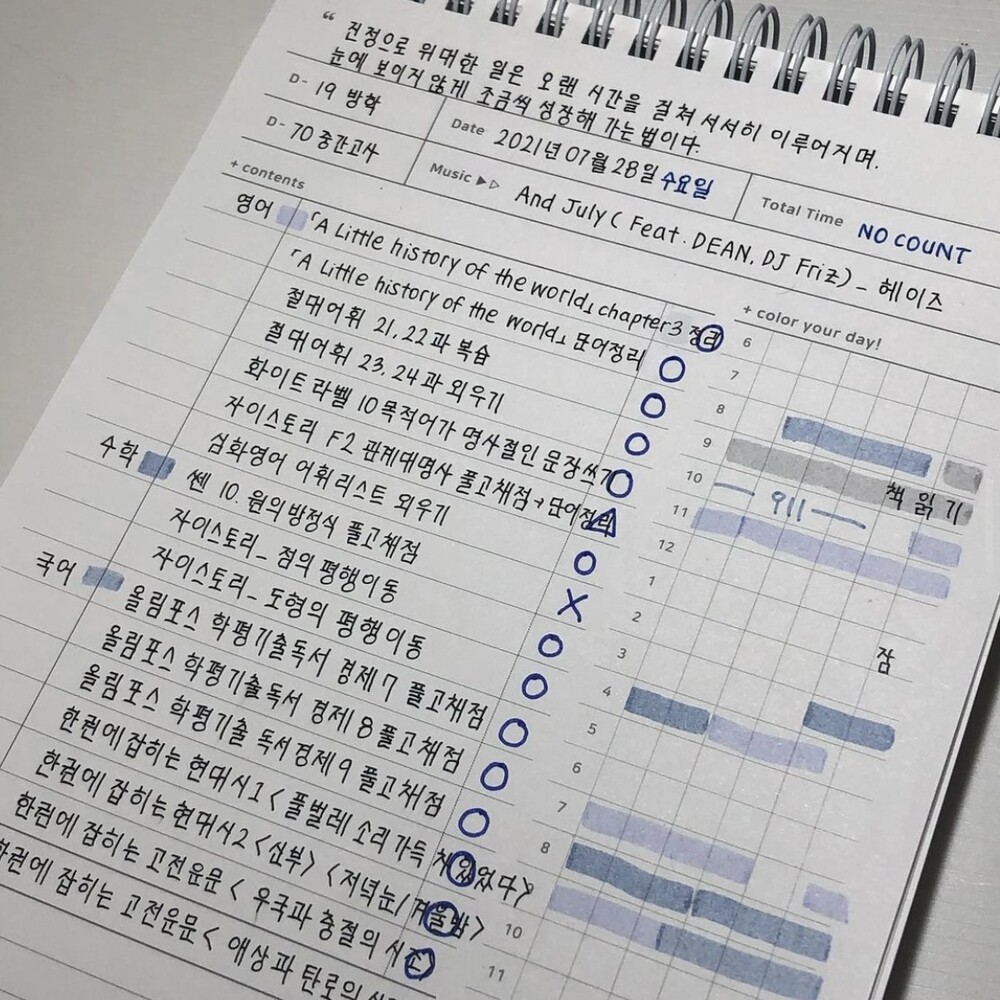 “ 진정으로 위대한 일은 오랜 시간을 걸쳐 서서히 이루어지며.
눈에 보이지 않게 조금씩 성장해 가는법이다.
D- 19 방학
D- 70 중간고사
Date 2021년 07월 28일 수요일
Total Time NO COUNT
Music ▶▷ And July ( Feat. DEAN, DJ Friz ) - 헤이즈
+ contents
+ color your day!
영어 「A Little history of the world」 chapter3 정리
「A Little history of the world」 단어정리
절대어휘 21, 22과 복습
절대어휘 23, 24과 외우기
화이트라벨 10 목적어가 명사절인 문장쓰기
자이스토리 F2 관계대명사 풀고채점→단어정리
심화영어 어휘리스트 외우기
수학 쎈 10. 원의방정식 풀고채점
자이스토리_ 점의 평행이동
자이스토리_ 도형의 평행이동
국어 올림포스 학평기출독서 경제 7 풀고채점
올림포스 학평기출독서 경제 8 풀고채점
올림포스 학평기출 독서 경제 9 풀고채점
한권에잡히는 현대시1 < 풀벌레 소리 가득 차있었다>
한권에 잡히는 현대시2 <신부> <저녁눈/겨울밤>
한권에 잡히는 고전운문 < 우국과 충절의 시조>
한권에 잡히는 고전운문 < 애상과 탄로의
6
7
8
9
10 책 읽기
11
12
1
2
3 잠
4
5
6
7
8
9
10
11